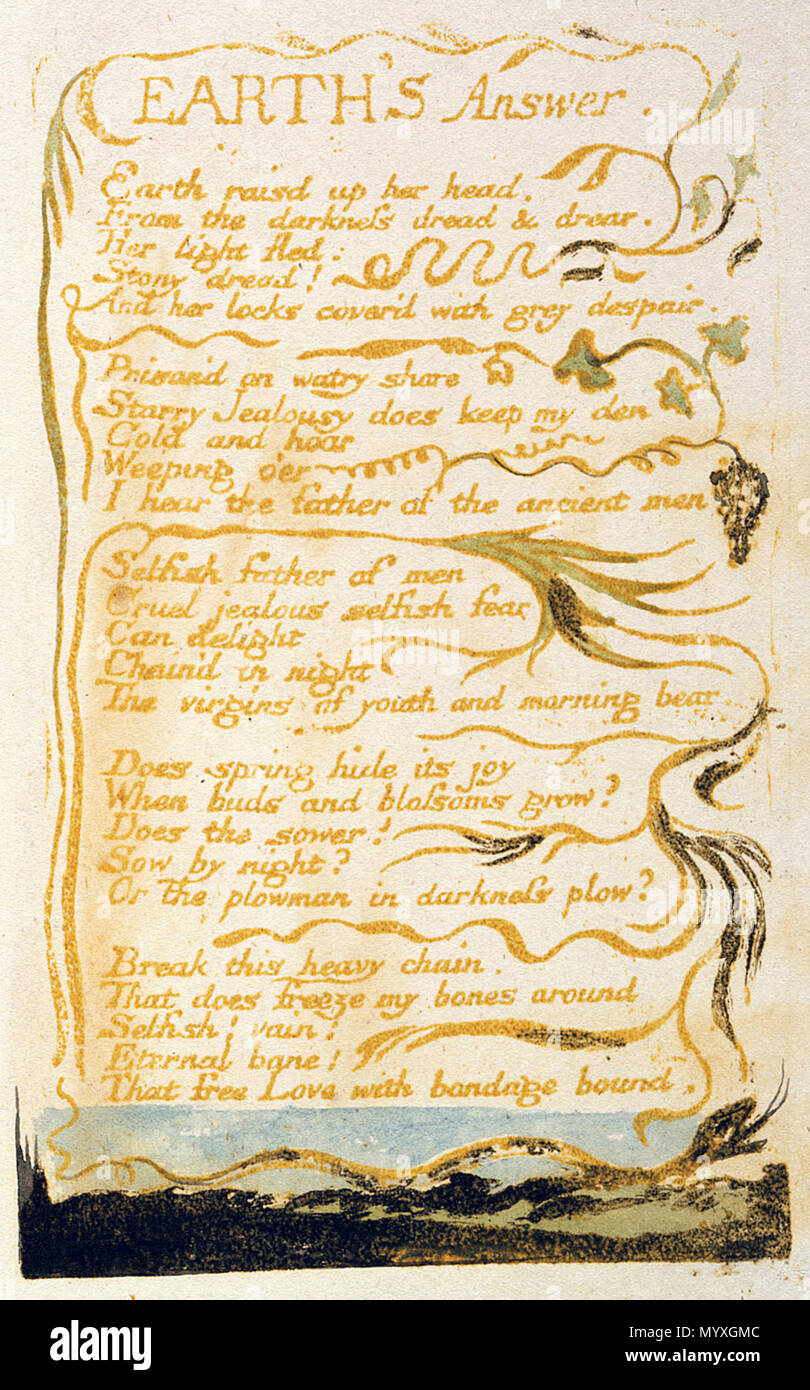 EARTH'S Answer.
Earth raisd up her head,
From the darkneſs dread & drear.
Her light fled:
Stony dread!
And her locks cover'd with grey despair.
Prison'd on watry shore
Starry Jealousy does keep my den
Cold and hoar
Weeping o'er
I hear the father of the ancient men
Selfish father of men
Cruel jealous selfish fear
Can delight
Chain'd in night
The virgins of youth and morning bear.
Does spring hide its joy
When buds and bloſsoms grow?
Does the sower!
Sow by night?
Or the plowman in darkneſs plow?
Break this heavy chain.
That does freeze my bones around
Selfish! vain!
Eternal bane!
That free Love with bondage bound,
alamy
alamy
alamy
alamy
Image ID: MYXGMC
www.alamy.com